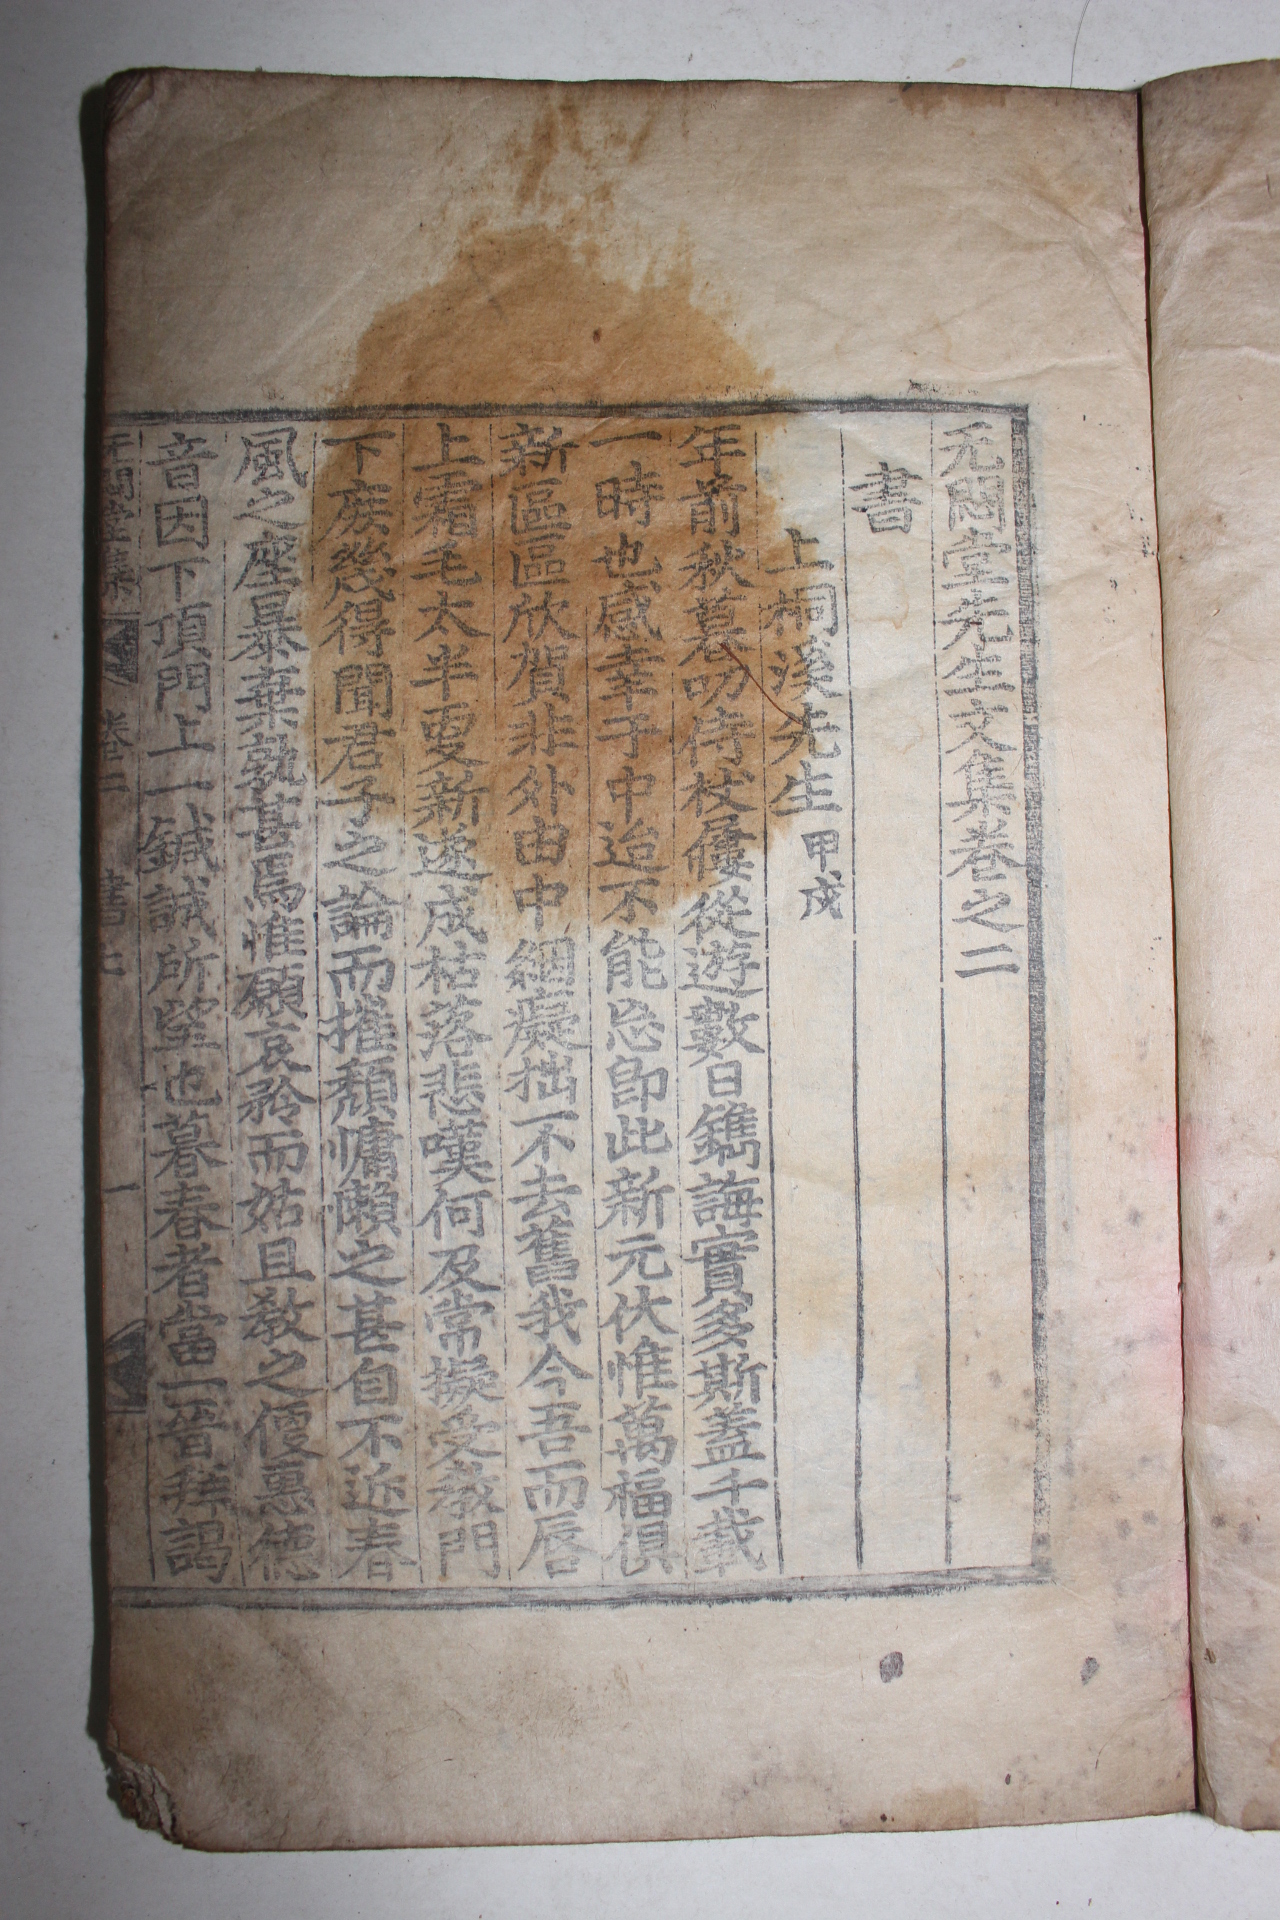 无悶堂先生文集卷之二
書
上桐溪先生 甲戌
年前秋暮叨侍杖屨從遊數日鐫誨實多斯蓋千載
一時也感幸于中迨不能忘卽此新元伏惟萬福俱
新區區欣賀非外由中絪癡拙不去舊我今吾而唇
上霜毛太半更新遂成枯落悲嘆何及常擬受敎門
下庶幾得聞君子之論而摧頹慵懶之甚自不近春
風之座暴棄孰甚焉惟願哀矜而姑且敎之優惠德
音因下頂門上一鍼誠所望也暮春者當一晉拜謁
无悶堂集 卷二 書 一